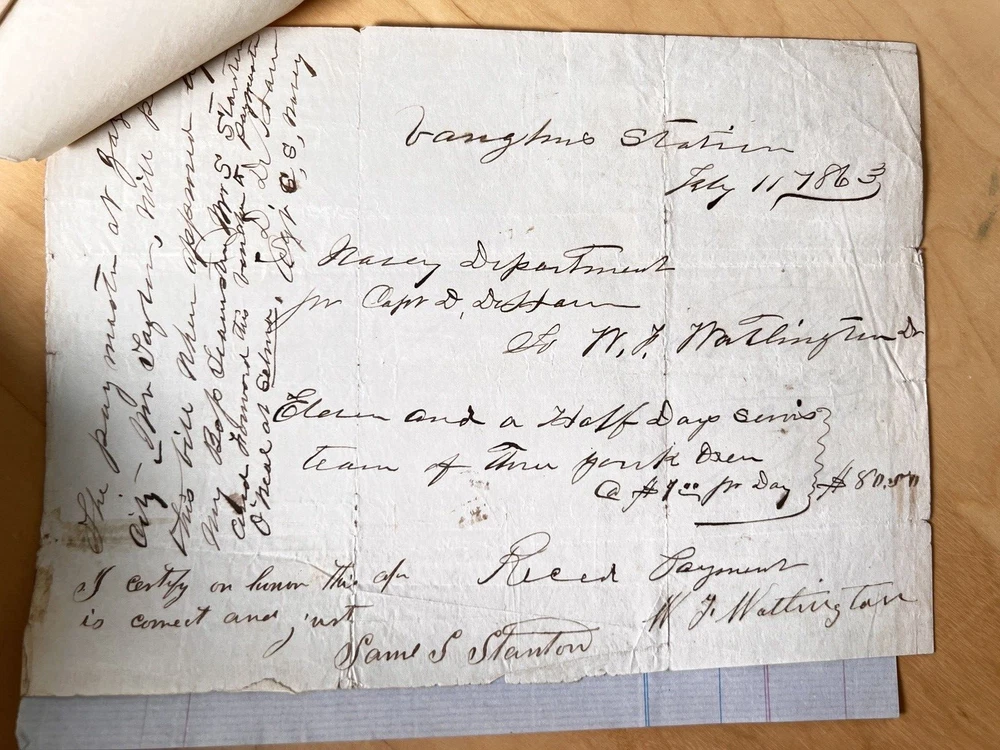 Vaughns Station
July 11 1863
Navey Department
pr Capt D, DeHaven
To W. F. Watlington Dr
Eleven and a Half Days servis
team of three yoak Oxen
@ $7.00 pr Day } $80.50
Reced Payment
W F Watlington
I certify on honor this
is correct and just
Saml S Stanton
The paymaster at
city Mr Taylor, will
this bill when approved
my Boss Teamster, Mr S Stanton
and Forward this voucher to Paymaster
O'Neal at Selma. D, DeHaven
Agt C, S, Navey